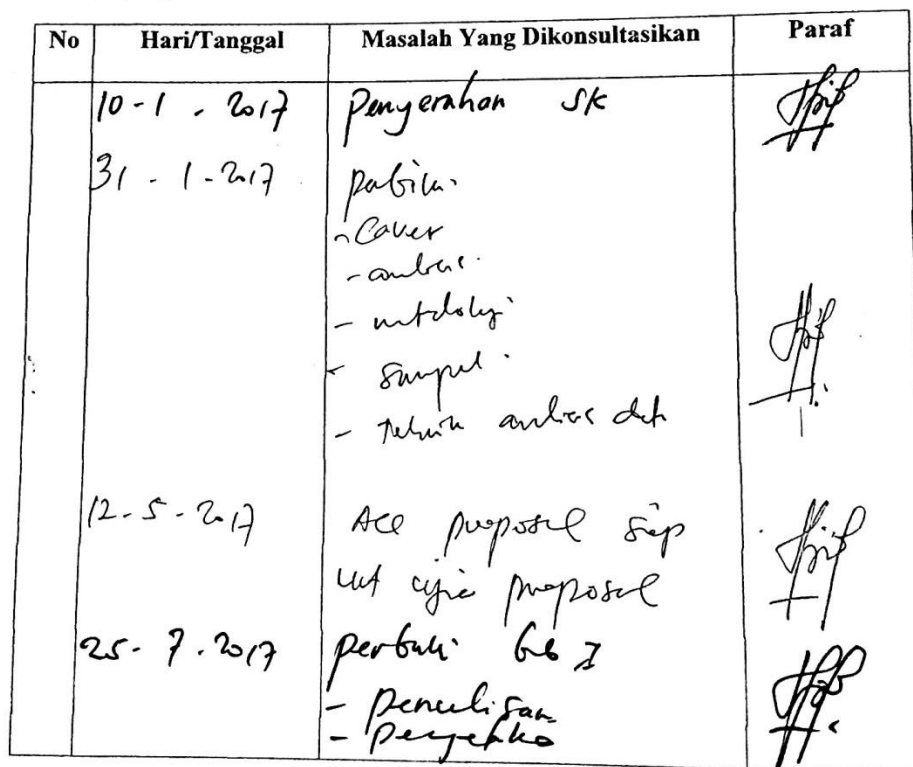 No Hari/Tanggal Masalah Yang Dikonsultasikan Paraf
10-1-2017 Penyerahan SK
31-1-2017
- Cover
- metdologi
- Sampel
- Teknik data
12-5-2017 Acc proposal siap
ujia proposal
25-7-2017 perbaiki bab I
- penulisan